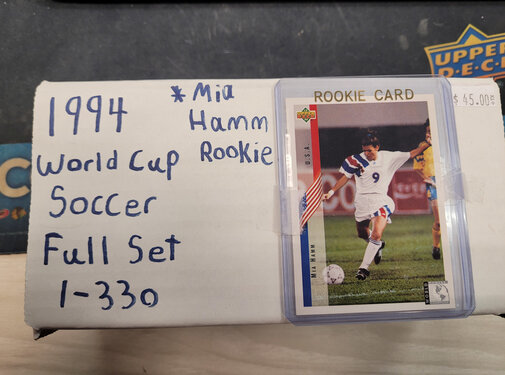 UPPER
D·E·C
$ 45.00
1994
World Cup
Soccer
Full Set
1-330
*Mia
Hamm
Rookie
ROOKIE CARD
U.S.A.
9
Mia Hamm